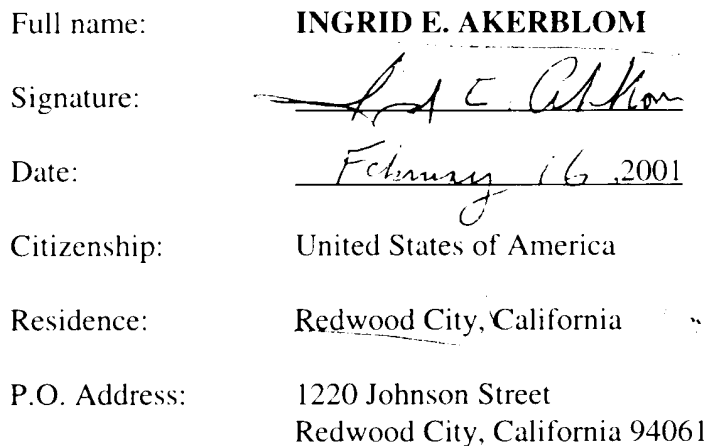 Full name: INGRID E. AKERBLOM
Signature:
Date: February 16 ,2001
Citizenship: United States of America
Residence: Redwood City, California
P.O. Address: 1220 Johnson Street
Redwood City, California 94061